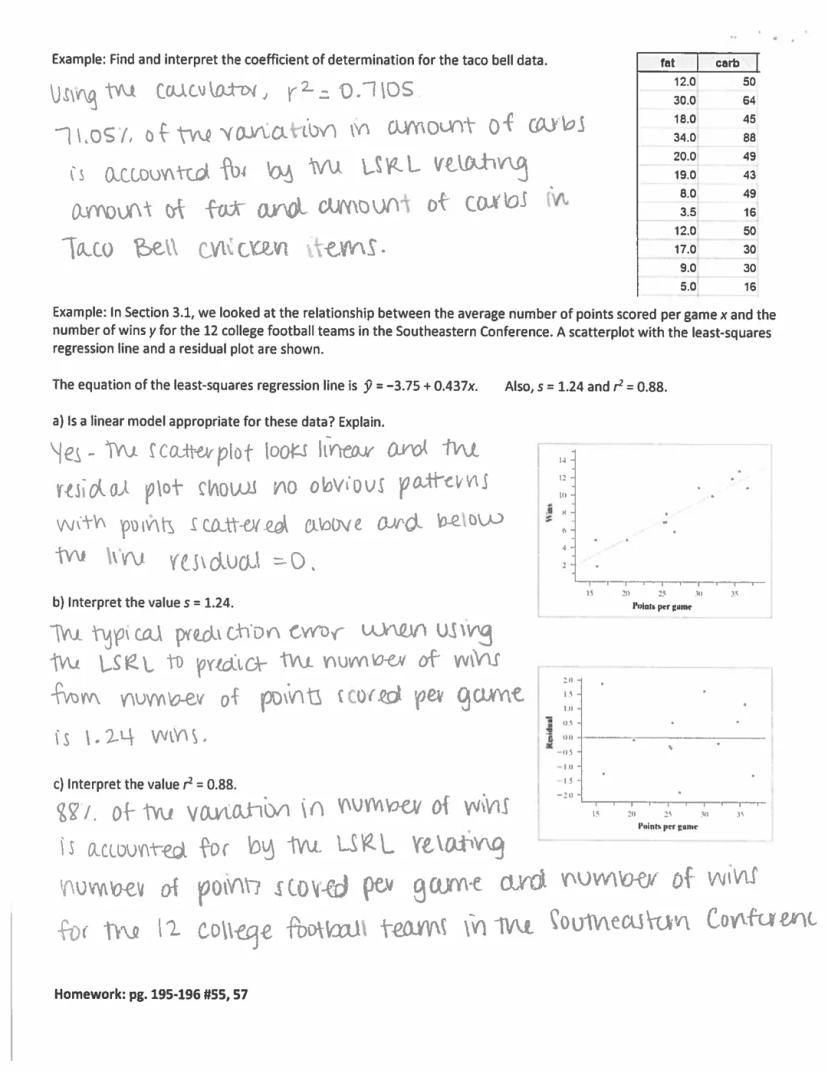 Example: Find and interpret the coefficient of determination for the taco bell data.
Using the calculator, r² = 0.7105
71.05% of the variation in amount of carbs
is accounted for by the LSRL relating
amount of fat and amount of carbs in
Taco Bell chicken items.
fat carb
12.0 50
30.0 64
18.0 45
34.0 88
20.0 49
19.0 43
8.0 49
3.5 16
12.0 50
17.0 30
9.0 30
5.0 16
Example: In Section 3.1, we looked at the relationship between the average number of points scored per game x and the
number of wins y for the 12 college football teams in the Southeastern Conference. A scatterplot with the least-squares
regression line and a residual plot are shown.
The equation of the least-squares regression line is ŷ = −3.75 + 0.437x. Also, s = 1.24 and r² = 0.88.
a) Is a linear model appropriate for these data? Explain.
Yes - The scatterplot looks linear and the
residal plot shows no obvious patterns
with points scattered above and below
the line residual = 0.
14
12
10
8
6
4
2
Wins
15 20 25 30 35
Points per game
b) Interpret the value s = 1.24.
The typical prediction error when using
the LSRL to predict the number of wins
from number of points scored per game
is 1.24 wins.
2.0
1.5
1.0
0.5
0.0
−0.5
−1.0
−1.5
−2.0
Residual
15 20 25 30 35
Points per game
c) Interpret the value r² = 0.88.
88% of the variation in number of wins
is accounted for by the LSRL relating
number of points scored per game and number of wins
for the 12 college football teams in the Southeastern Conferenc
Homework: pg. 195-196 #55, 57